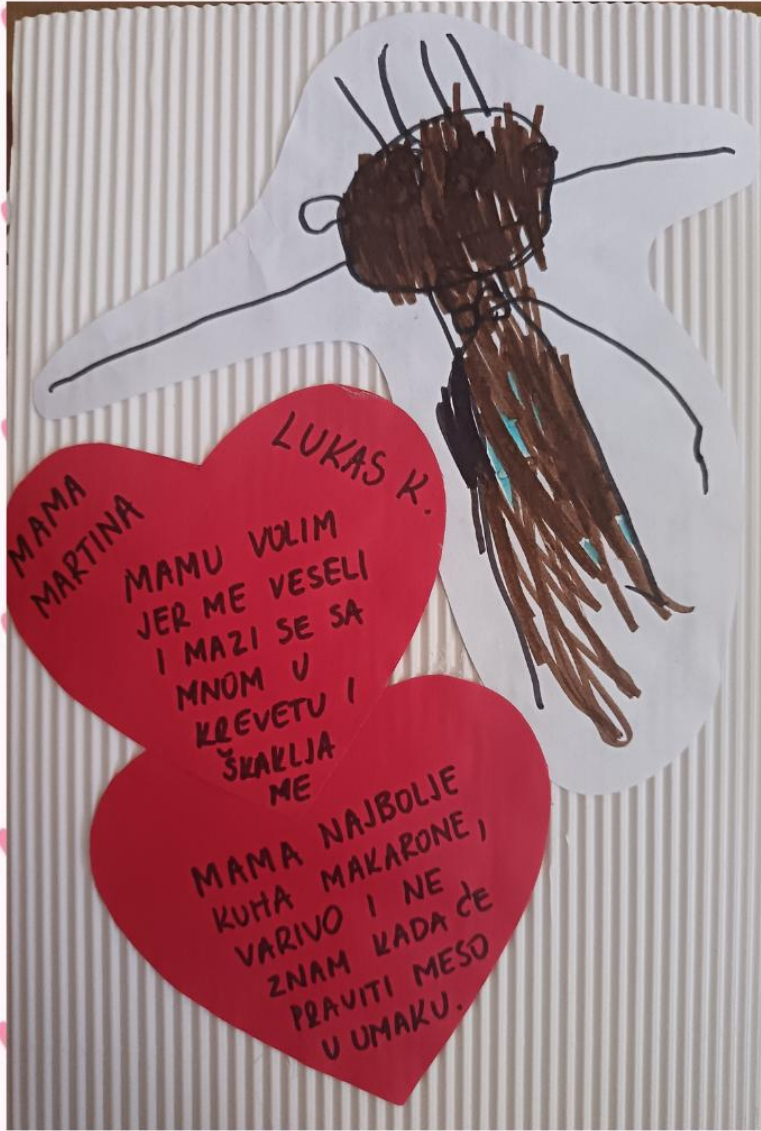 MAMA
MARTINA
LUKAS K.
MAMU VOLIM
JER ME VESELI
I MAZI SE SA
MNOM U
KREVETU I
ŠKAKLJA
ME
MAMA NAJBOLJE
KUHA MAKARONE,
VARIVO I NE
ZNAM KADA ĆE
PRAVITI MESO
U UMAKU.